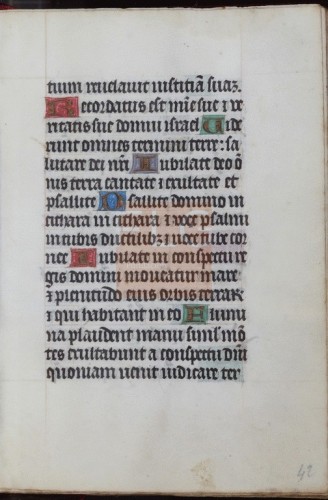 tuum reuelauit iustitiā suaz.
Recordatus est mīe sue ⁊ ve
ritatis sue domui israel Uide
runt omnes termini terre: sa
lutare dei nr̄i Iubilate deo ō
nis terra cantate ⁊ exultate et
psallite Psallite domino in
cithara in cithara ⁊ voce psalmi
in tubis ductilibz ⁊ uoce tube cor
nee Iubilate in conspectu re
gis domini moueatur mare
⁊ plenitudo eius orbis terraꝝ
⁊ qui habitant in eo Flumi
na plaudent manu simĺ mō
tes exultabunt a conspectu dn̄i
quoniam uenit iudicare ter
42